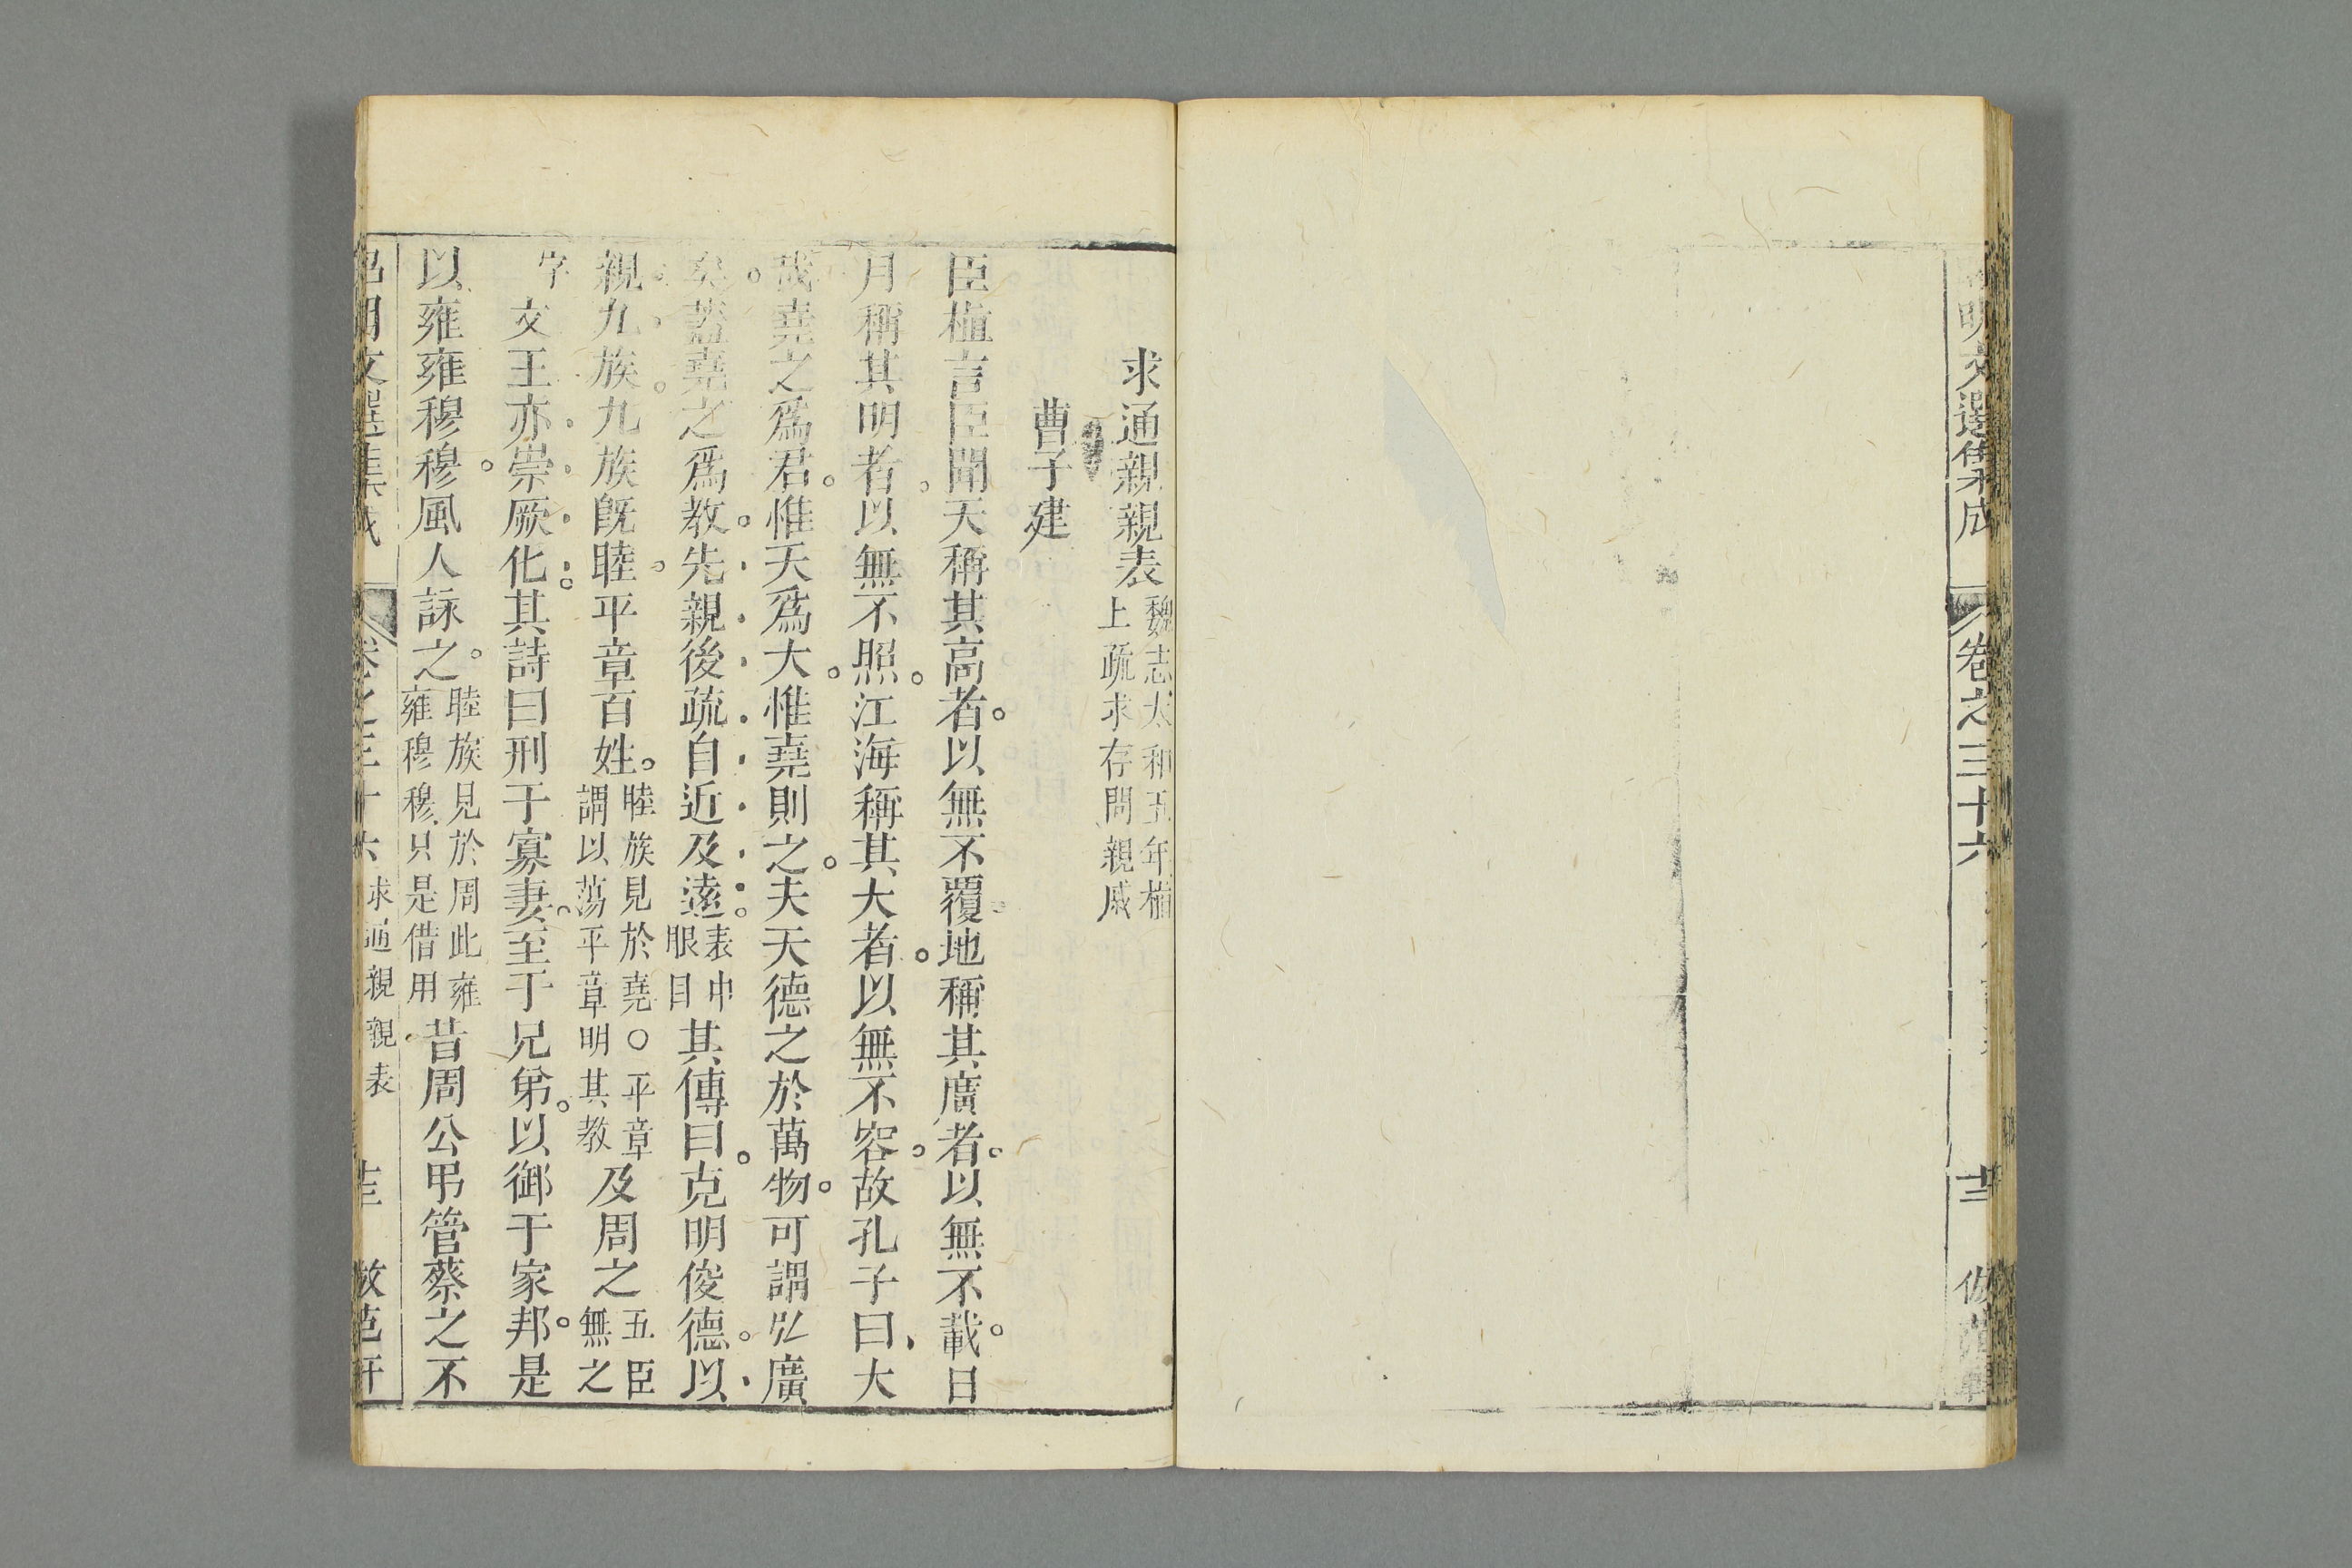 明文選集成 卷之三十六
求通親親表 魏志太和五年植上疏求存問親戚
曹子建
臣植言臣聞天稱其高者以無不覆地稱其廣者以無不載日
月稱其明者以無不照江海稱其大者以無不容故孔子曰大
哉堯之爲君惟天爲大惟堯則之夫天德之於萬物可謂弘廣
矣蓋堯之爲教先親後疏自近及遠 表中眼目 其傳曰克明俊德以
親九族九族旣睦平章百姓 睦族見於堯○平章謂以蕩平章明其教 及周之 五臣無之
字 文王亦崇厥化其詩曰刑于寡妻至于兄弟以御于家邦是
以雍雍穆穆風人詠之 睦族見於周此雍雍穆穆只是借用 昔周公弔管蔡之不
文選集成 卷之三十六 求通親親表